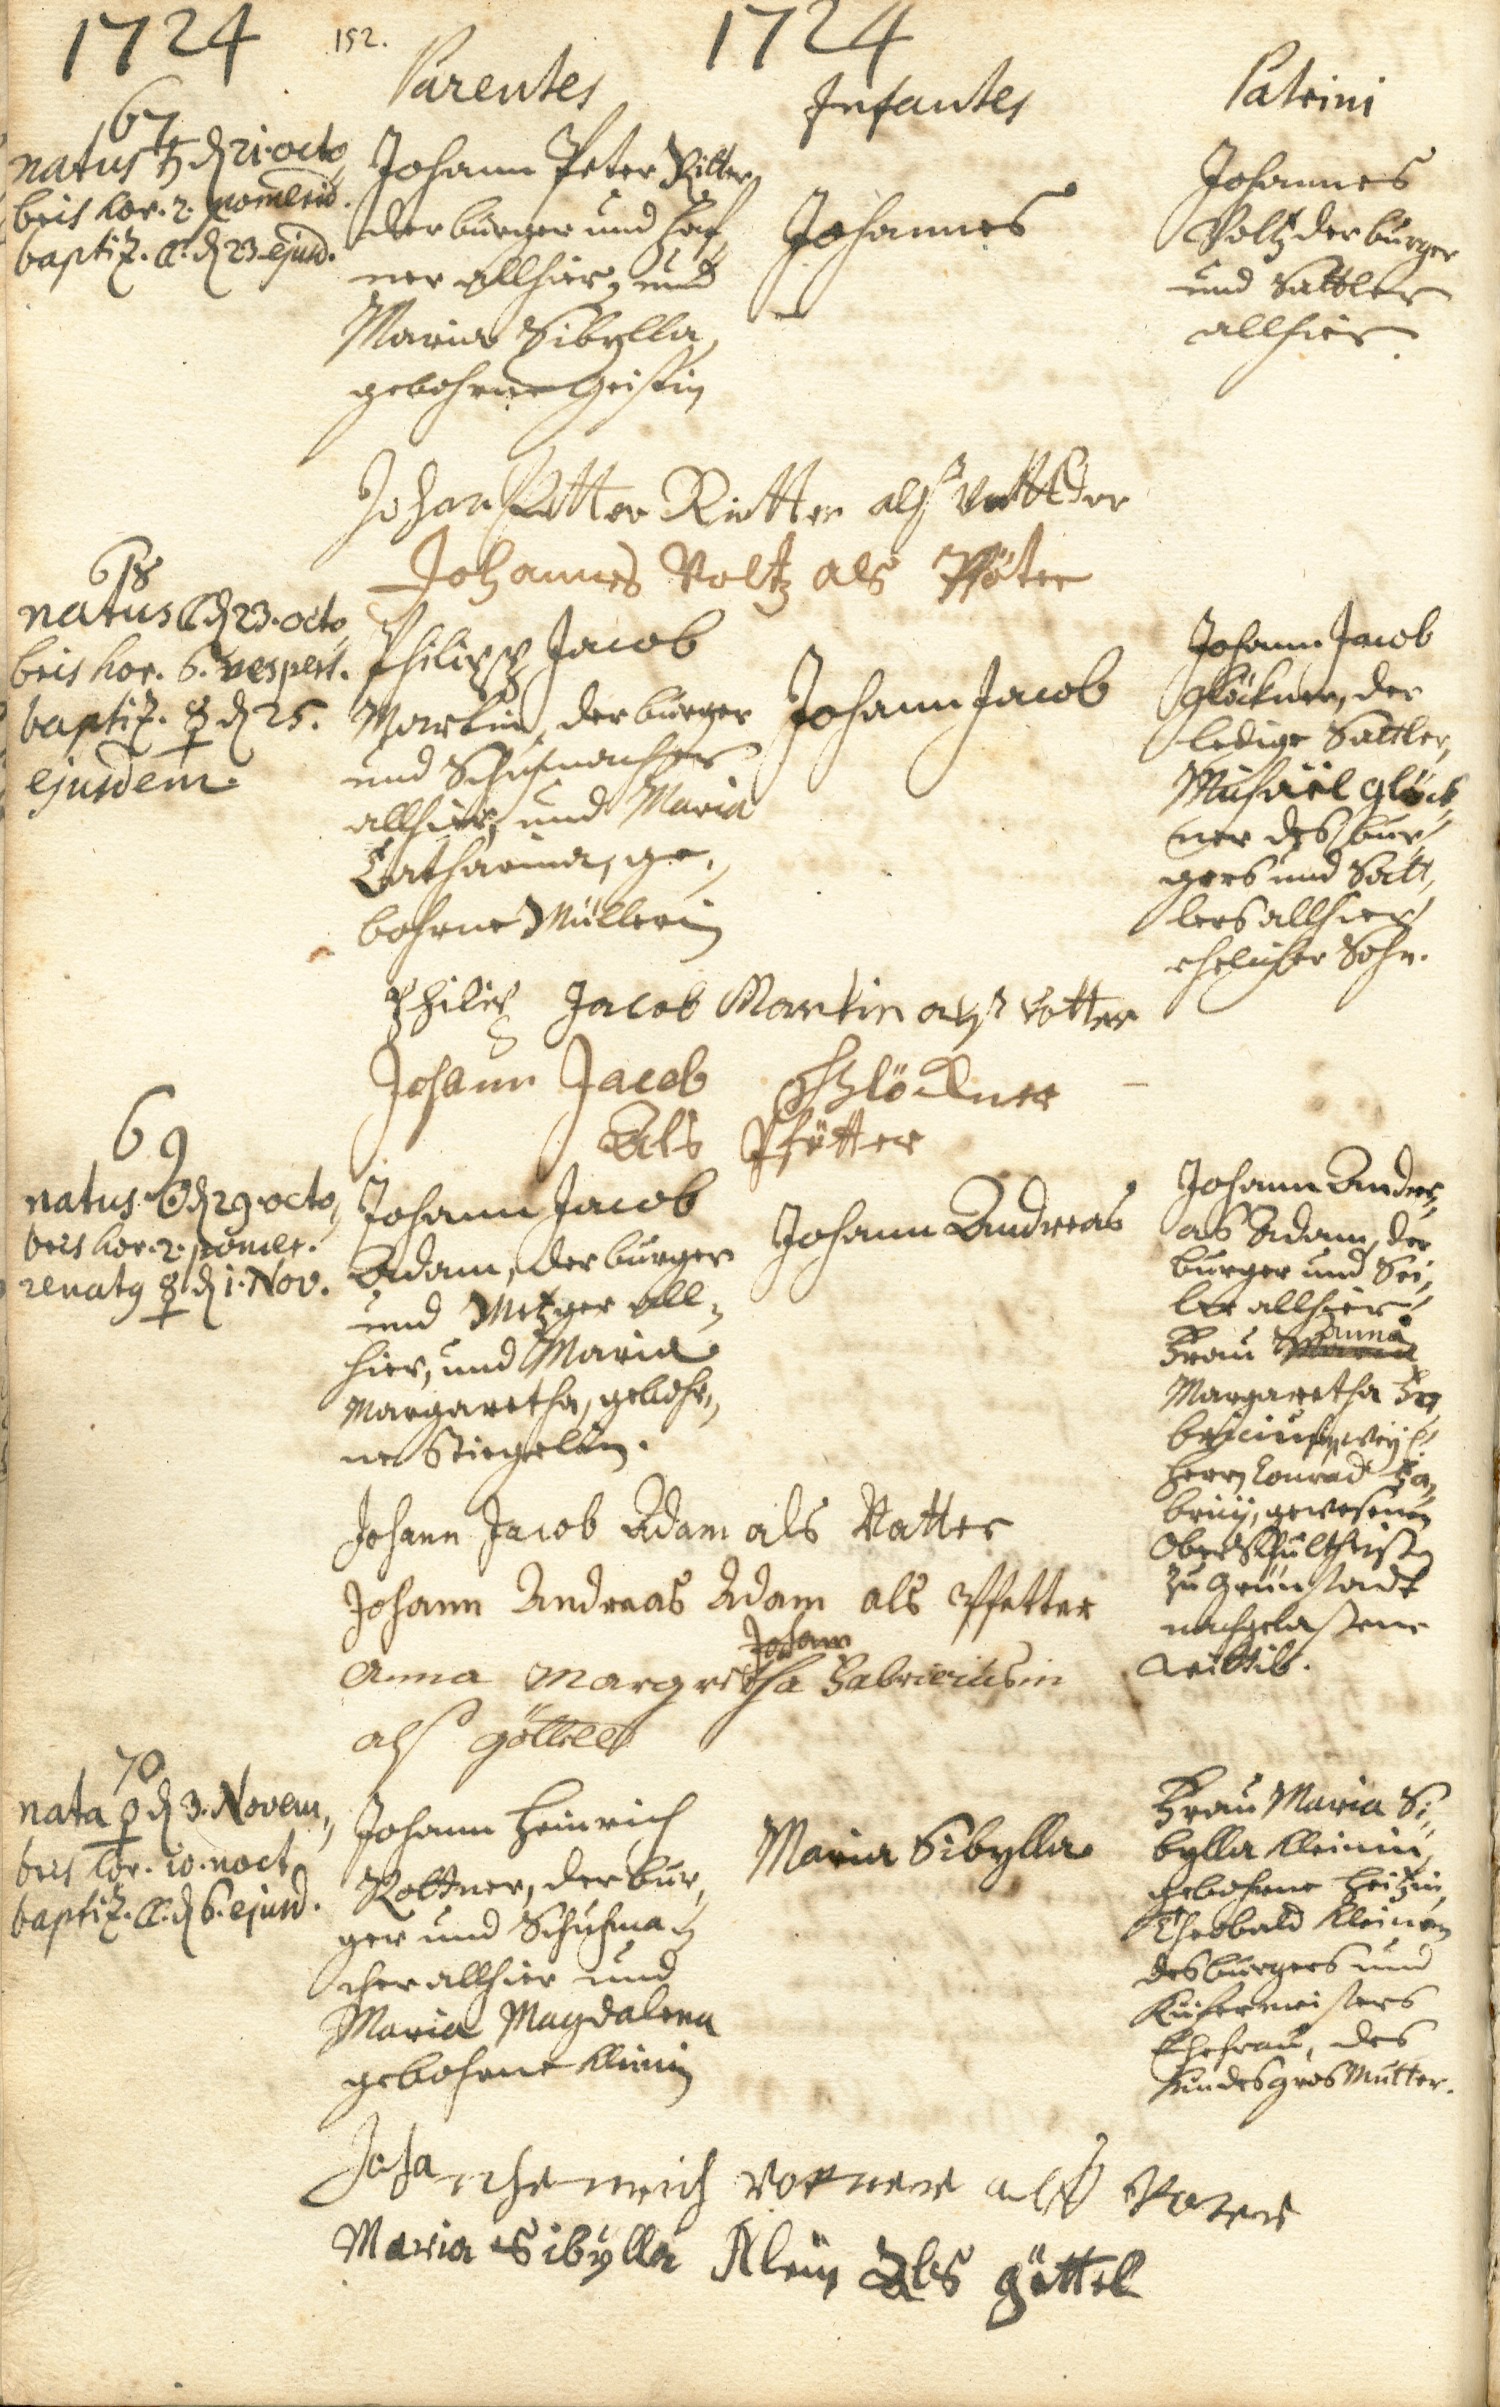 1724 152. 1724
Parentes Infantes Patrini
67
natus ♄ d 21. octo,
bris hor. 2. pomerid.
baptiz. ☾ d 23. ejusd.
Johann Peter Ritter,
der burger und Haf,
ner allhier, und
Maria Sibylla,
gebohrne Geistin
Johannes
Johannes
Voltz der burger
und Sattler
allhier.
Johan Petter Rietter alß Vattter
Johannes Voltz als Pfötter
68
natus ☾ d 23. octo,
bris hor. 6. vespert.
baptiz. ☿ d 25.
ejusdem.
Philipp Jacob
Martin, der burger
und Schuhmacher
allhier, und Maria
Catharina, ge,
bohrne Müllerin
Johann Jacob
Johann Jacob
Glöckner, der
ledige Sattler,
Michäel Glöck,
ner des bur,
gers und Satt,
lers allhier
ehelicher Sohn.
Philip Jacob Martin alß Vatter
Johann Jacob Glöckner
Als Pfötter
69
natus ☉ d 29. octo,
bris hor. 2. pomer.
renatg ☿ d 1. Nov.
Johann Jacob
Adam, der burger
und Metzger all,
hier, und Maria
Margaretha, gebohr,
ne Stiegelin.
Johann Andreas
Johann Andre,
as Adam, der
burger und Sei,
ler allhier
Frau Maria Anna
Margaretha Fa,
bricius, weyl.
Herrn Conrad Fa,
bricij, gewesenen
Oberschultheisen
zu Grünstadt
nachgelaßene
Wittib.
Johann Jacob Adam als Vatter
Johann Andreas Adam als Pfetter
Anna Margretha Fabriciusin
alß göttell
70
nata ♀ d 3. Novem,
bris hor. 10. noct.
baptiz. ☾ d 6. ejusd.
Johann Heinrich
Rottner, der bur,
ger und Schuhma,
cher allhier und
Maria Magdalena
gebohrne Kleinin
Maria Sibylla
Frau Maria Si,
bylla Kleinin,
gebohrne Heitzin,
Theobald Kleinen
des burgers und
Küfermeisters
Ehefrau, des
Kindes gros Mutter.
Maria Sibÿlla Klein Als göttel